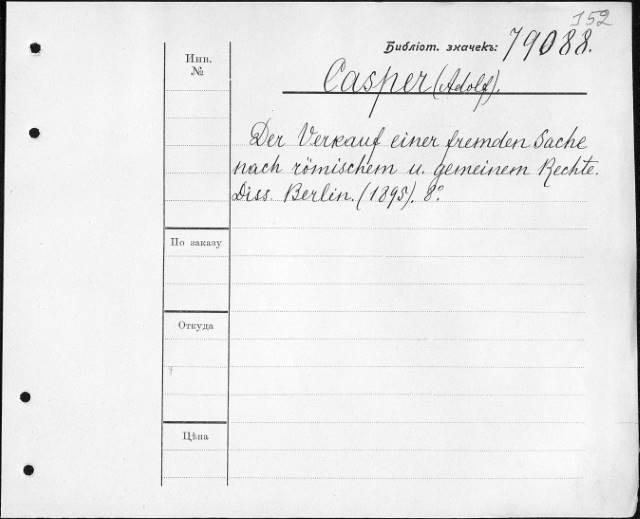 152
Библіот. значекъ: 79088.
Инв.
№
Casper (Adolf).
Der Verkauf einer fremden Sache
nach römischem u. gemeinem Rechte.
Diss. Berlin. (1895). 8°.
По заказу
Откуда
Цѣна